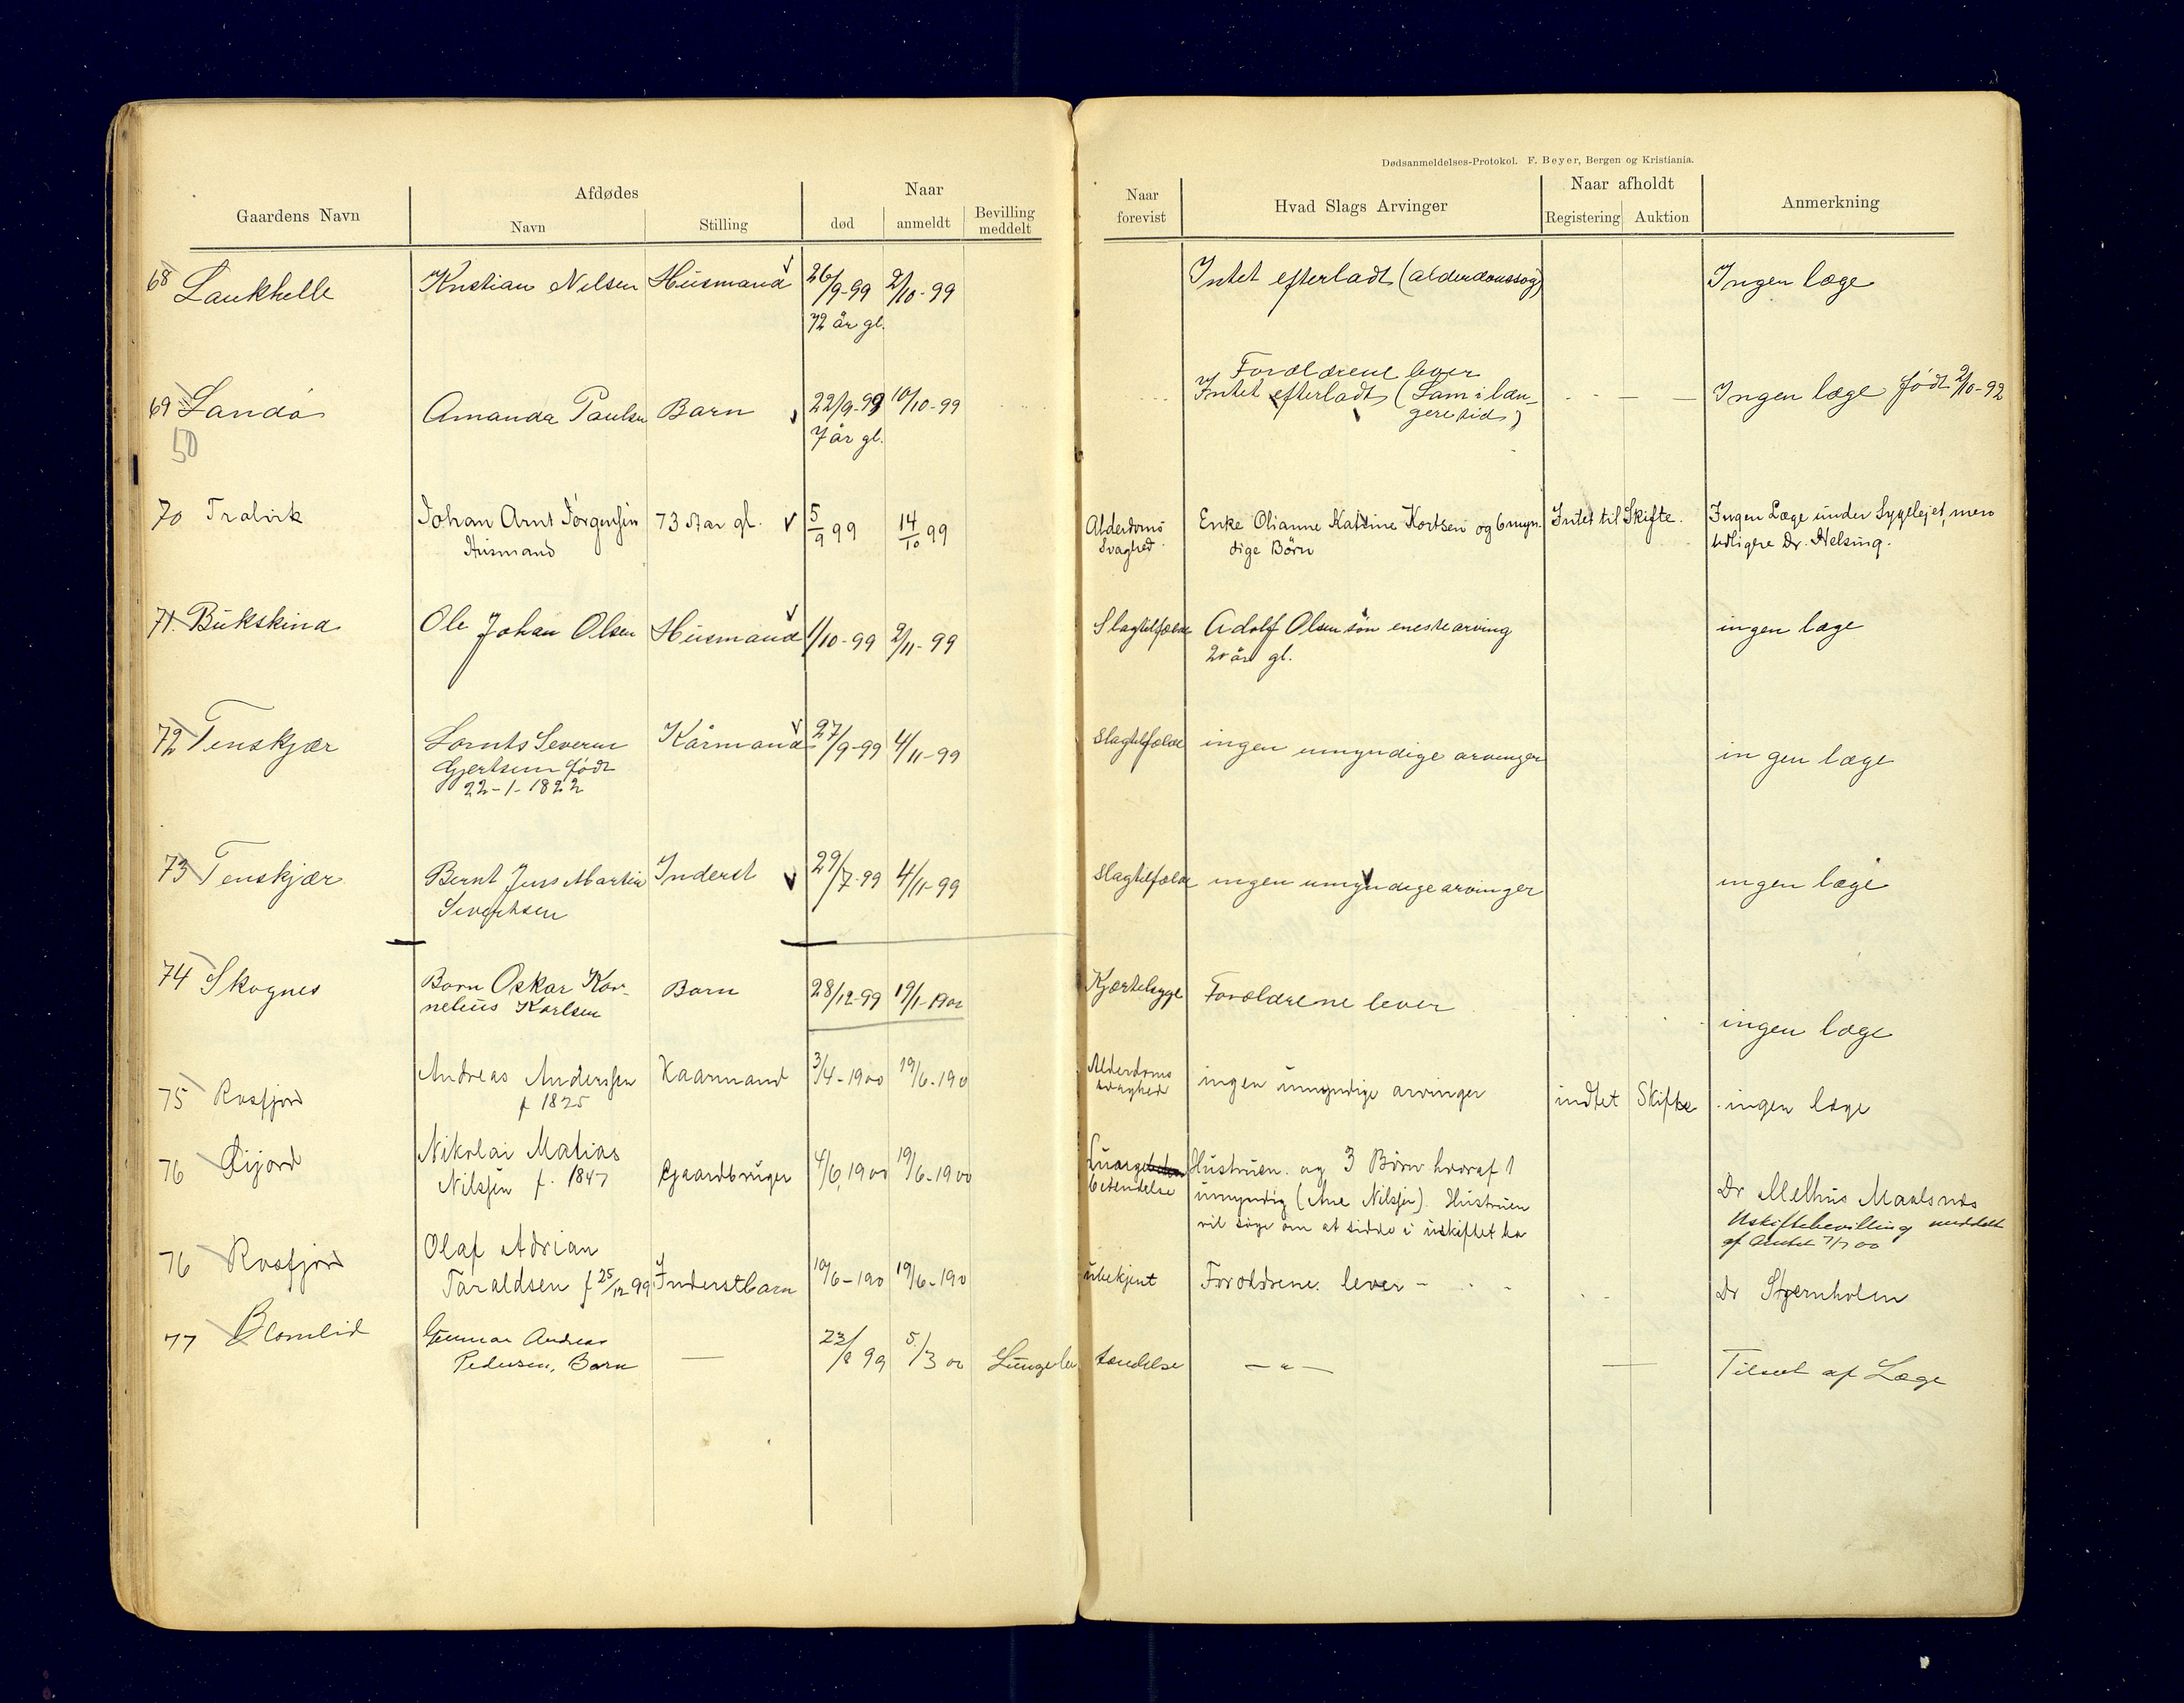 Dødsanmeldelses-Protokol. F. Beyer, Bergen og Kristiania.
Gaardens Navn Afdødes Navn Stilling Naar død anmeldt Bevilling meddelt Naar forevist Hvad Slags Arvinger Naar afholdt Registering Auktion Anmerkning
68 Laukhelle Kristian Nilsen Husmand 26/9-99 2/10-99 Intet efterladt (alderdomssvag) Ingen læge
72 år gl.
Forældrene lever
69 Landø Amanda Paulsen Barn 22/9-99 10/10-99 Intet efterladt (Lam i læn- Ingen læge født 2/10-92
50 7 år gl. gere tid)
70 Tralvik Johan Arnt Jørgensen 73 Aar gl. 5/9 99 14/10 99 Alderdoms Enke Olianne Katrine Kortsen og 6 myn- Intet til Skifte. Ingen Læge under Sygelejet, men
Husmand Svaghed dige Børn tidligere Dr. Helsing.
71. Bukskind Ole Johan Olsen Husmand 1/10-99 2/11-99 Slagtilfælde Adolf Olsen søn enestearving ingen læge
20 år gl.
72 Tenskjær Lornts Severin Kårmand 27/9-99 4/11-99 Slagtilfælde ingen umyndige arvinger ingen læge
Gjertsen født
22-1-1822
73 Tenskjær Bernt Jens Martin Inderst 29/7-99 4/11-99 Slagtilfælde ingen umyndige arvinger ingen læge
Sivertsen
74 Skognes Barn Oskar Kor- Barn 28/12-99 19/1-1900 Kjertelsyge Forældrene lever ingen læge
nelius Karlsen
75 Rossfjord Andreas Anderssen Kaarmand 3/4-1900 19/6-190 Alderdoms ingen umyndige arvinger indtet Skifte ingen læge
f 1825 svaghed
76 Øijord Nikolai Matias Gaardbruger 4/6, 1900 19/6-1900 Lunge Hustruen og 3 Børn hvoraf 1 Dr Melhus Maalsnes
Nilssen f. 1847 betendelse umyndig (Ane Nilssen). Hustruen Uskiftebevilling meddelt
vil søge om at sidde i uskiftet bo af Amtet 7/7 00
76 Rossfjord Olaf Adrian Inderstbarn 10/6-190 19/6-190 ubekjent Forældrene lever - Dr Stjernholm
Taraldsen f 25/12 99
77 Blomlid Gunnar Andreas — 23/8 99 5/3 00 Lungebe tændelse — " — — Tilseet af Læge
Pedersen, Barn